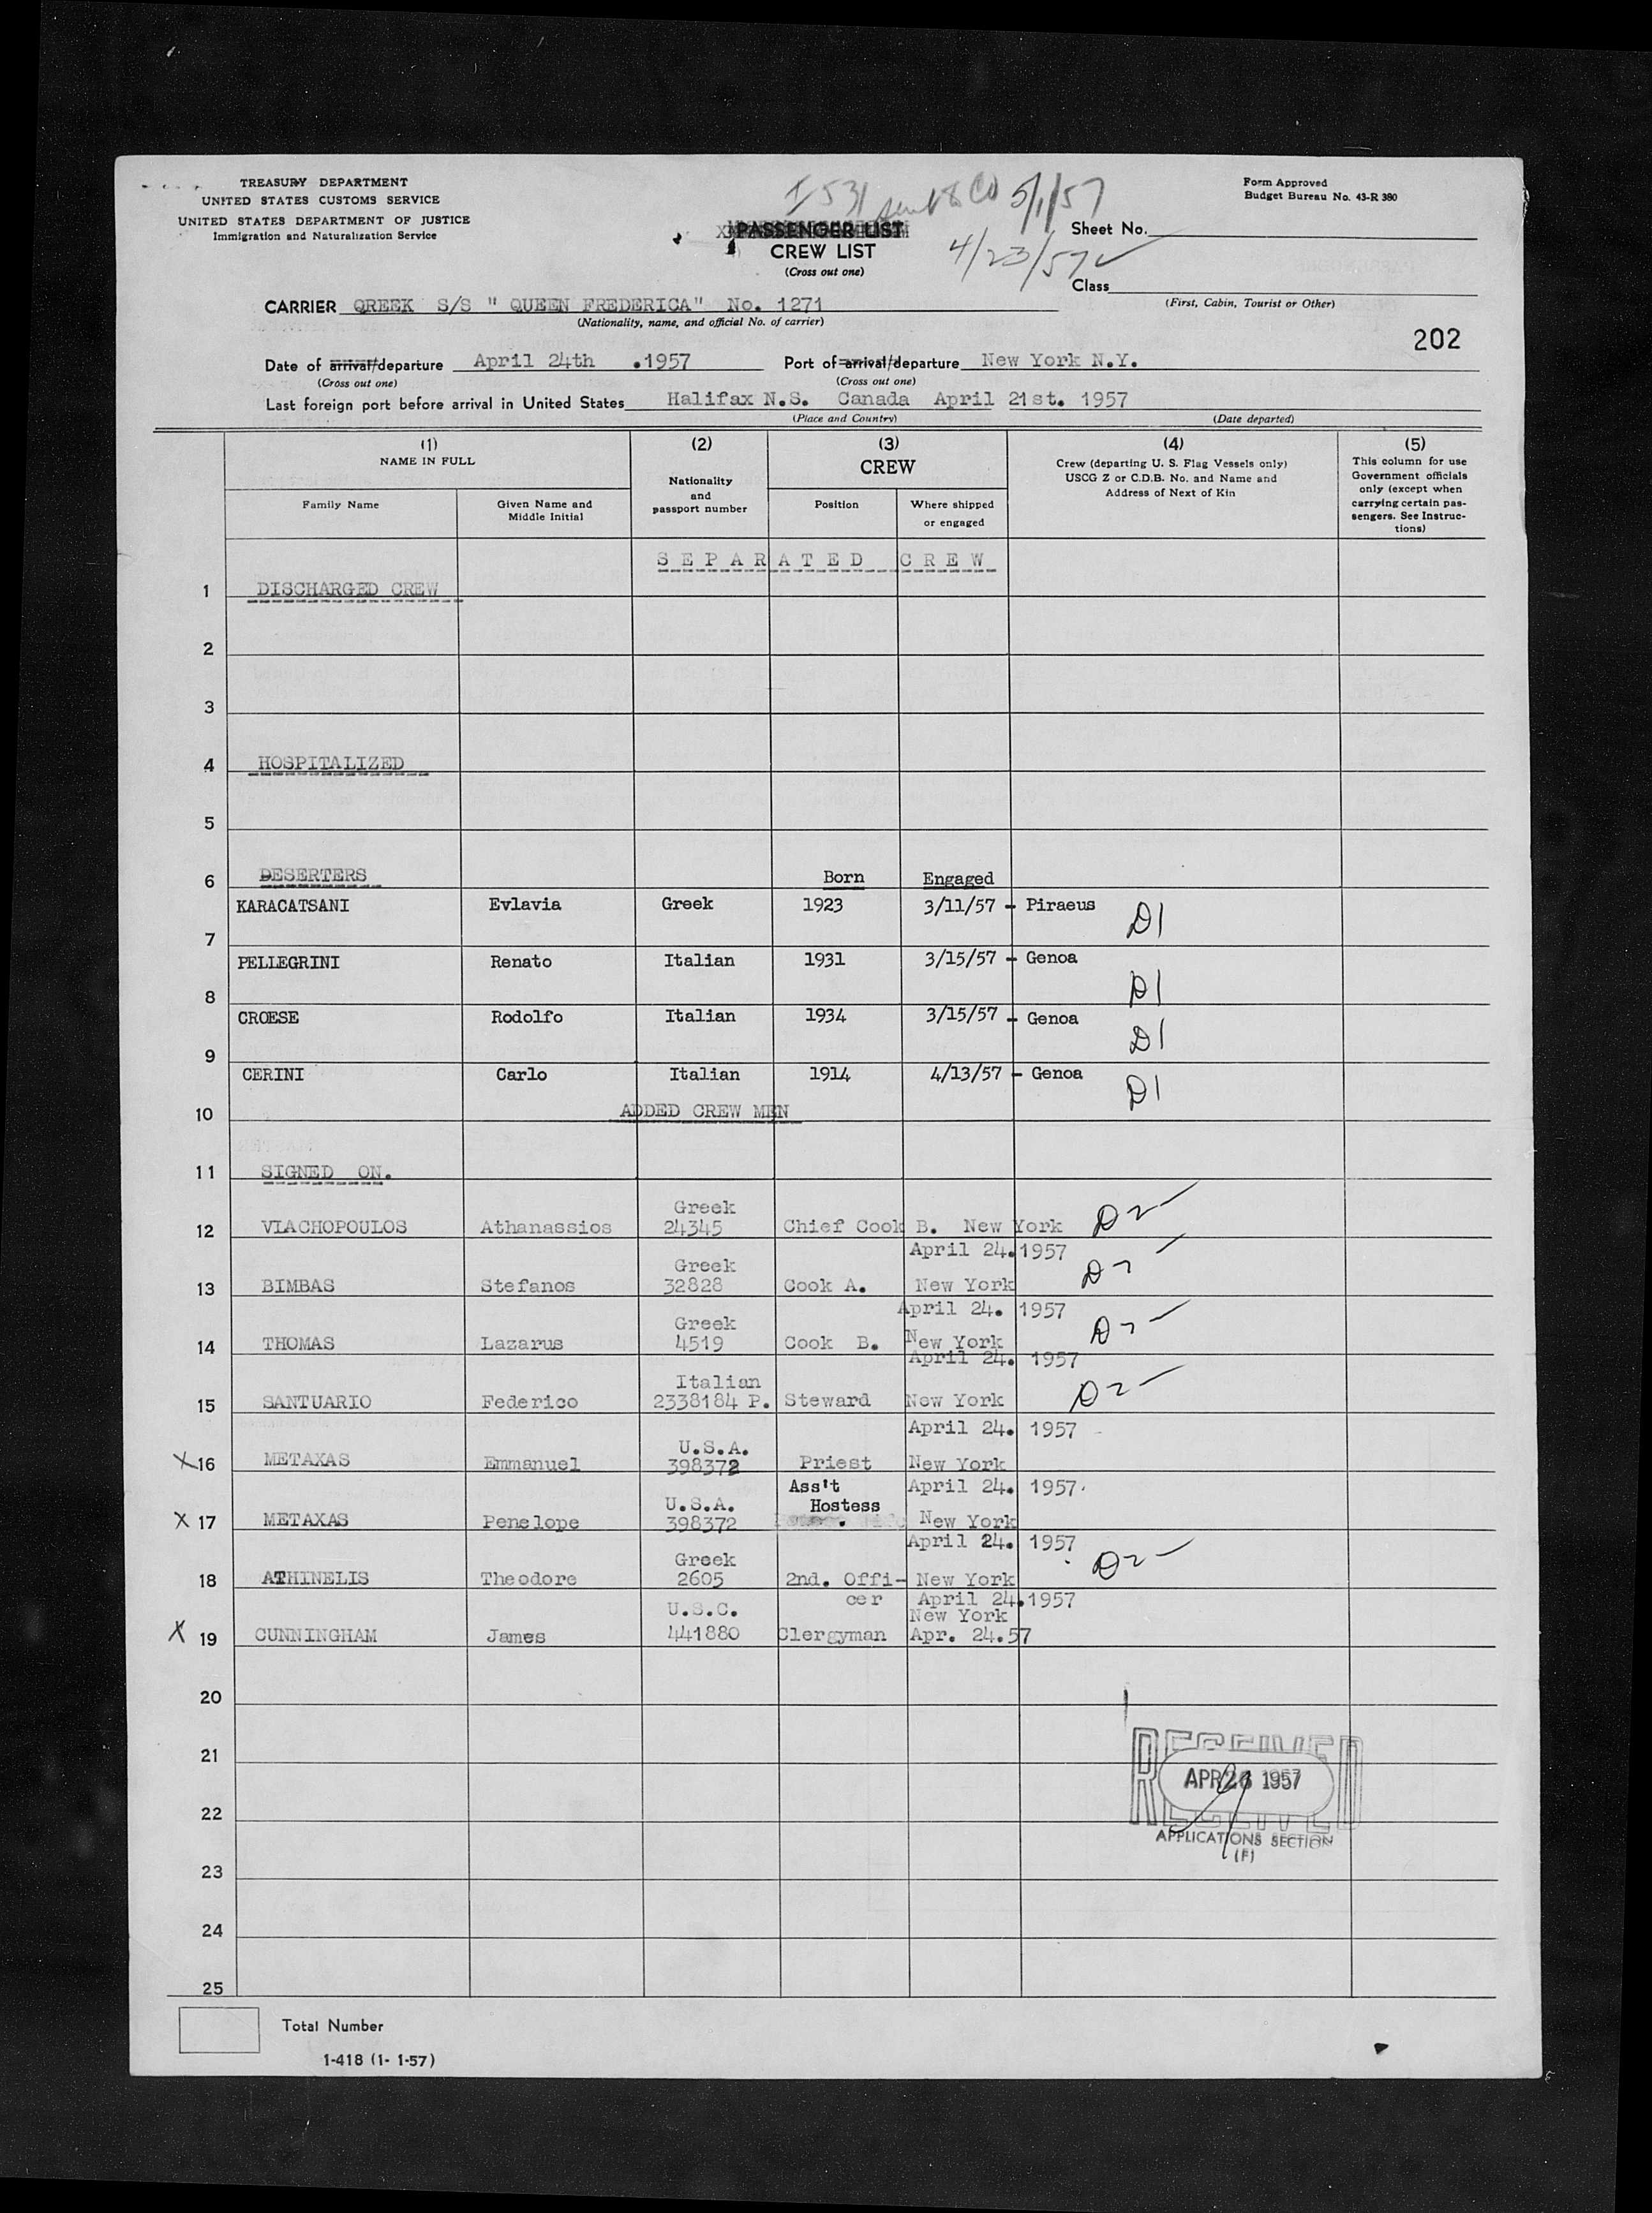 TREASURY DEPARTMENT
UNITED STATES CUSTOMS SERVICE
UNITED STATES DEPARTMENT OF JUSTICE
Immigration and Naturalization Service
I 531 sent to CO 5/1/57
Form Approved
Budget Bureau No. 43-R 380
PASSENGER LIST
CREW LIST
(Cross out one)
4/23/57
Sheet No.
Class
(First, Cabin, Tourist or Other)
CARRIER QREEK S/S " QUEEN FREDERICA" No. 1271
(Nationality, name, and official No. of carrier)
202
Date of arrival/departure April 24th .1957 Port of arrival/departure New York N.Y.
(Cross out one) (Cross out one)
Last foreign port before arrival in United States Halifax N.S. Canada April 21st. 1957
(Place and Country) (Date departed)
(1) (2) (3) (4) (5)
NAME IN FULL
Family Name
Given Name and Middle Initial
Nationality and passport number
CREW
Position
Where shipped or engaged
Crew (departing U. S. Flag Vessels only)
USCG Z or C.D.B. No. and Name and
Address of Next of Kin
This column for use
Government officials
only (except when
carrying certain pas-
sengers. See Instruc-
tions)
SEPARATED CREW
1 DISCHARGED CREW
2
3
4 HOSPITALIZED
5
6 DESERTERS Born Engaged
KARACATSANI Evlavia Greek 1923 3/11/57 - Piraeus D1
7
PELLEGRINI Renato Italian 1931 3/15/57 - Genoa D1
8
CROESE Rodolfo Italian 1934 3/15/57 - Genoa D1
9
CERINI Carlo Italian 1914 4/13/57 - Genoa D1
10 ADDED CREW MEN
11 SIGNED ON.
Greek
12 VIACHOPOULOS Athanassios 24345 Chief Cook B. New York D2
April 24.1957
Greek
13 BIMBAS Stefanos 32828 Cook A. New York D2
April 24. 1957
Greek
14 THOMAS Lazarus 4519 Cook B. New York D2
April 24. 1957
Italian
15 SANTUARIO Federico 2338184 P. Steward New York D2
April 24. 1957
U.S.A.
X 16 METAXAS Emmanuel 398372 Priest New York
Ass't April 24. 1957.
U.S.A. Hostess
X 17 METAXAS Penelope 398372 New York
April 24. 1957
Greek
18 ATHINELIS Theodore 2605 2nd. Offi- New York D2
cer April 24.1957
U.S.C. New York
X 19 CUNNINGHAM James 441880 Clergyman Apr. 24.57
20
21
22
23
24
25
RECEIVED
APR 26 1957
RECEIVED
APPLICATIONS SECTION
(F)
Total Number
1-418 (1- 1-57)